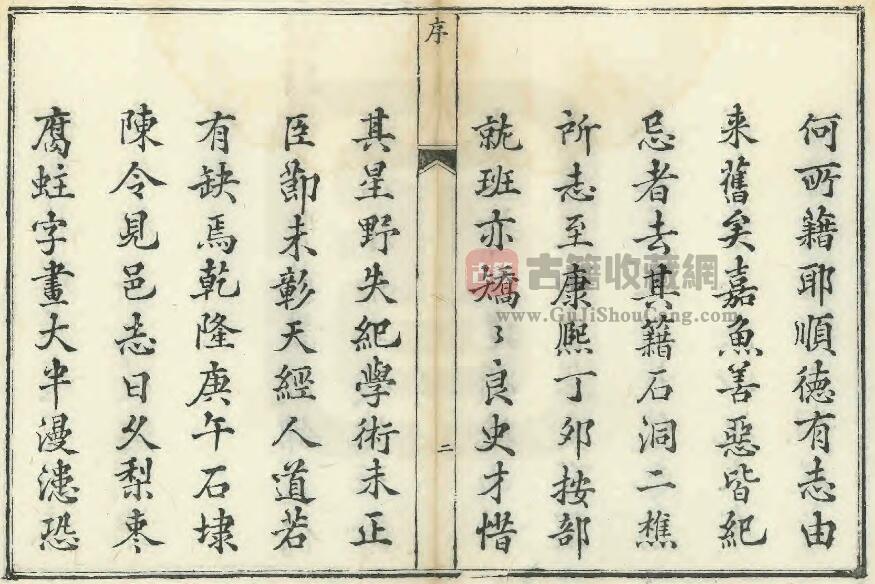 何所藉耶順徳有志由
来舊矣嘉魚善惡皆紀
忌者去其籍石洞二樵
所志至康熈丁夘按部
就班亦矯〻良史才惜
序
二
其星野失紀學術未正
臣節未彰天經人道若
有缺焉乾隆庚午石埭
陳令見邑志日乆梨枣
腐蛀字畫大半漫漶恐
古籍收藏網
www.GuJiShouCang.com